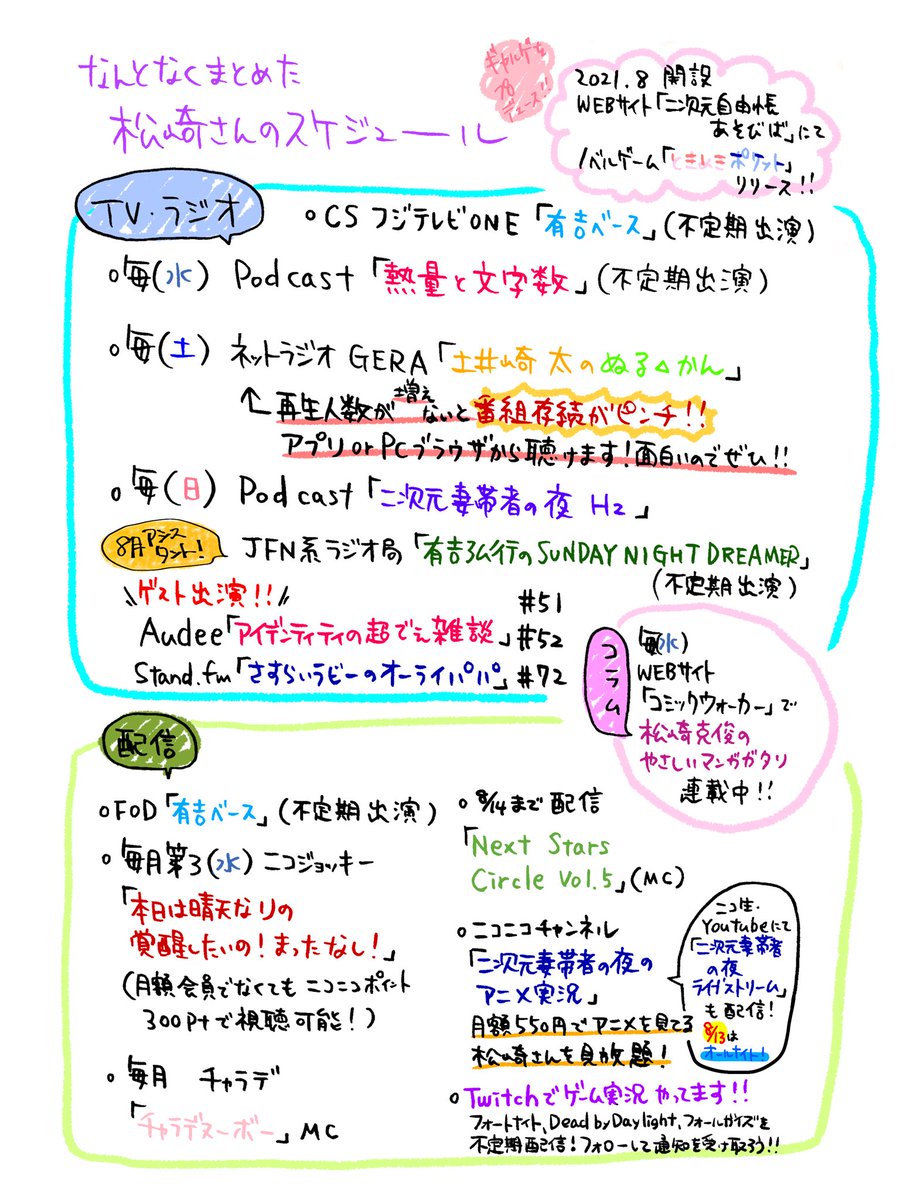 なんとなくまとめた
松崎さんのスケジュール
ギャルゲを
プロ
デュース!!
2021.8 開設
WEBサイト「二次元自由帳
あそびば」にて
ノベルゲーム「ときめきポケット」
リリース!!
TV・ラジオ
○CS フジテレビONE「有吉ベース」(不定期出演)
○毎(水) Podcast「熱量と文字数」(不定期出演)
○毎(土) ネットラジオ GERA「土井崎 太のぬる△かん」
↑再生人数が増えないと番組存続がピンチ!!
アプリorPCブラウザから聴けます!面白いのでぜひ!!
○毎(日) Podcast「二次元妻帯者の夜 Hz」
8月アシスタント!
JFN系ラジオ局「有吉弘行のSUNDAY NIGHT DREAMER」
(不定期出演)
\\ゲスト出演!!//
#51
Audee「アイデンティティの超でぇ雑談」#52
Stand.fm「さすらいラビーのオーライパパ」#72
コラム
毎(水)
WEBサイト
「コミックウォーカー」で
松崎克俊の
やさしいマンガガタリ
連載中!!
配信
○FOD「有吉ベース」(不定期出演)
○毎月第3(水) ニコジョッキー
「本日は晴天なりの
覚醒したいの!まったなし!」
(月額会員でなくても ニコニコポイント
300ptで視聴可能!)
○毎月 チャラデ
「チャラデヌーボー」MC
○8/14まで配信
「Next Stars
Circle Vol.5」(MC)
○ニコニコチャンネル
「二次元妻帯者の夜の
アニメ実況」
月額550円でアニメを見てる
松崎さんを見放題!
ニコ生・
Youtubeにて
「二次元妻帯者
の夜
ライブストリーム」
も配信!
8/13は
オールナイト!
○Twitchでゲーム実況やってます!!
フォートナイト、Dead by Daylight、フォールガイズを
不定期配信!フォローして通知を受け取ろう!!